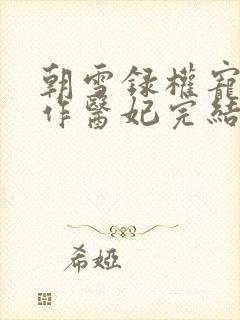 朝雪録權寵
作醫妃完結
希婭